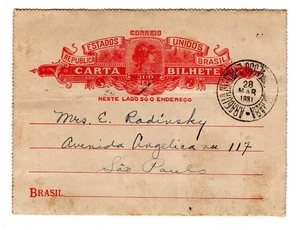 CORREIO
ESTADOS UNIDOS
REPUBLICA BRASIL
CARTA BILHETE
100
NESTE LADO SÓ O ENDEREÇO
28
MAR
1931
Mrs. E. Radinsky
Avenida Angelica nº 117
São Paulo
BRASIL